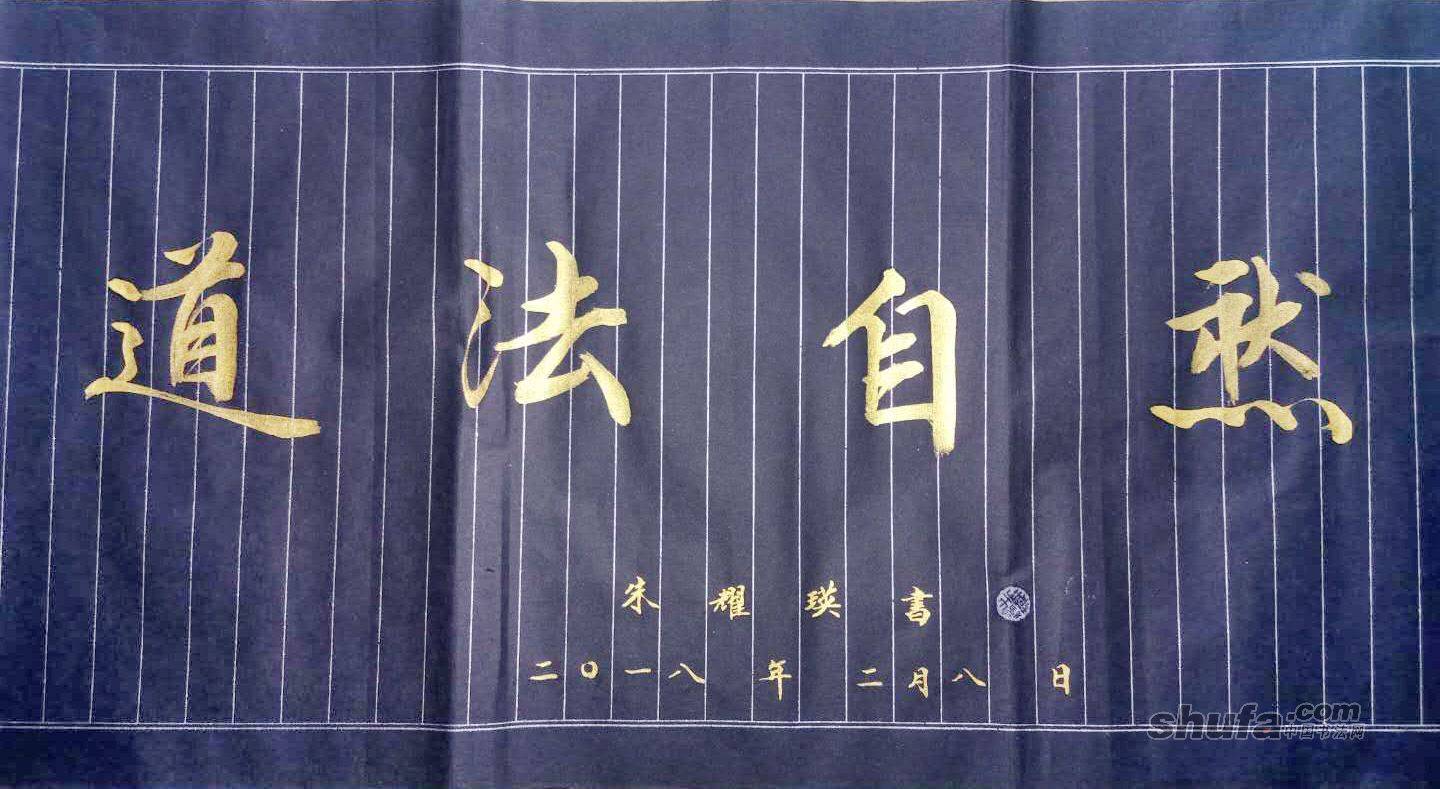 道法自然
朱耀瑛书
二〇一八年二月八日
shufa.com
中国书法网